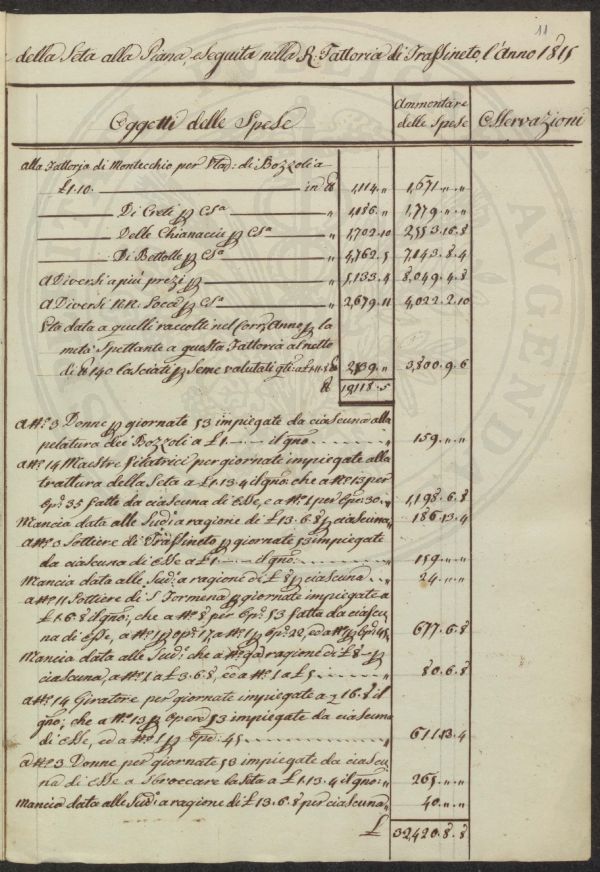 11
della Seta alla Piana, eseguita nella R. Fattoria di Frassineto, l'Anno 1815
Oggetti delle Spese
Ammontare delle Spese
Osservazioni
alla Fattoria di Montecchio per di Bozzoli a
£1.10. in ℔ 1,114.„ 1,671.„.„
Di Creti p Csa „ 1,186.„ 1,779.„.„
Delle Chianaccie p Csa „ 1,702.10 2,553.16.8
Di Bettolle p Csa „ 4,762.5 7,143.8.4
A Diversi a più prezzi p „ 5,133.4 8,049.4.8
A Diversi NR. Socci p Csa „ 2,679.11 4,022.2.10
Sta data a quelli raccolti nel Corr. Anno p la
metà Spettante a questa Fattoria al netto
di ℔ 140 lasciati p Seme valutati 2,539.„ 3,800.9.6
℔ 19,118.5
a No. 3 Donne p giornate 53 impiegate da ciascuna alla
pelatura dei Bozzoli a £1. il gno. „ 159.„.„
a No. 14 Maestre filatrici per giornate impiegate alla
trattura della Seta a £1.13.4 il gno. che a No. 13 per
Opre 35 fatte da ciascuna di Esse, e a No. 1 per Opre 30. „ 1,198.6.8
Mancia data alle Sude. a ragione di £13.6.8 p ciascuna, „ 186.13.4
a No. 3 Sottiere di Frassineto p giornate 53 impiegate
da ciascuna di Esse a £1 il gno. „ 159.„.„
Mancia data alle Sude. a ragione di £8 p ciascuna „ 24.„.„
a No. 11 Sottiere di S. Tormena p giornate impiegate a
£1.6.8 il gno; che a No. 8 per Opre 53 fatta da ciascu
na di Esse, a No. 1 p opre 17, a No. 1 p Opre 22, ed a No. 1 p Opre 45 „ 677.6.8
Mancia data alle Sude. che a No. 9 a ragione di £8 p
ciascuna, a No. 1 a £3.6.8, ed a No. 1 a £5 „ 80.6.8
a No. 14 Giratore per giornate impiegate a 16.8 il
gno; che a No. 13 p Opere 53 impiegate da ciascuna
di Esse, ed a No. 1 p Opre 45 „ 611.13.4
a No. 3 Donne per giornate 53 impiegate da ciascu
na di Esse a Sbroccare la Seta a £1.13.4 il gno. „ 265.„.„
Mancia data alle Sude. a ragione di £13.6.8 per ciascuna „ 40.„.„
£ 32,420.8.8